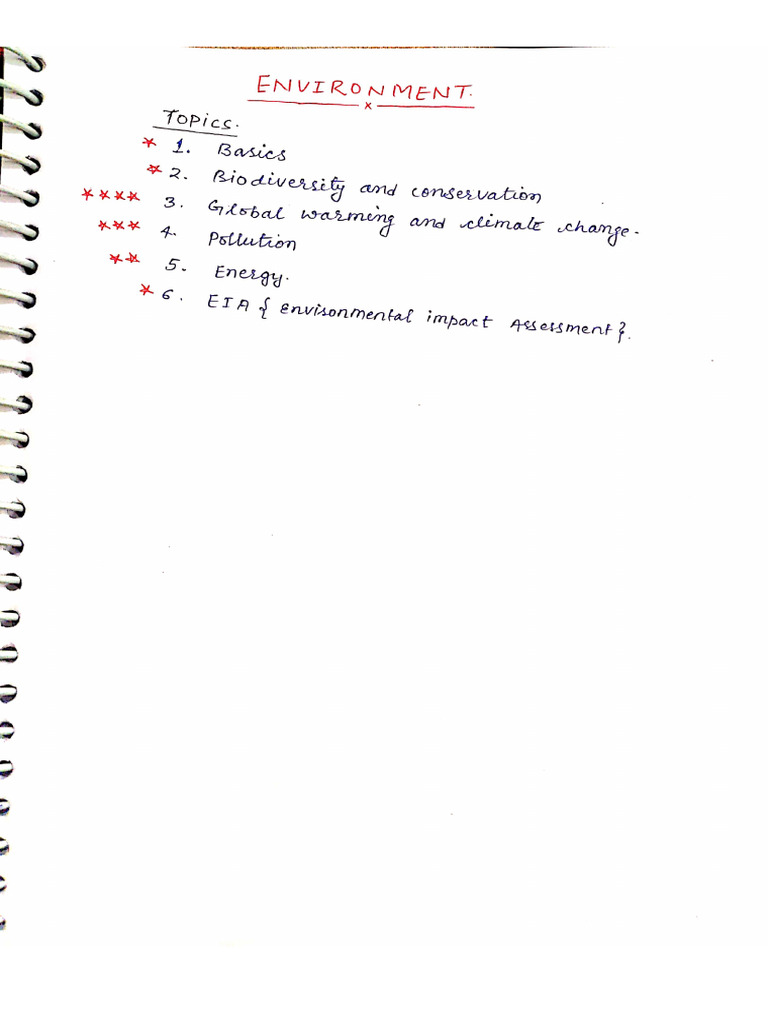 ENVIRONMENT.
x
Topics.
* 1. Basics
* 2. Biodiversity and conservation
**** 3. Global warming and climate change.
*** 4. Pollution
** 5. Energy.
* 6. EIA { Envisonmental impact Assessment}.